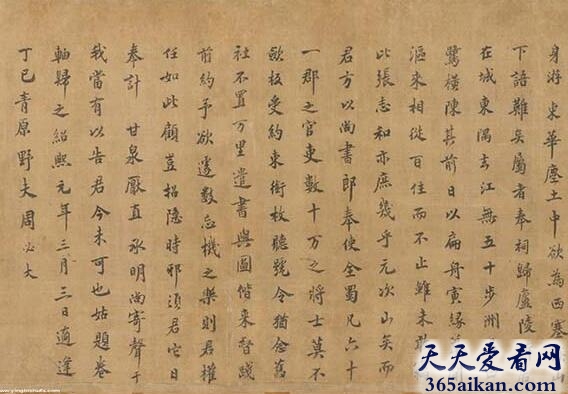 身游東華塵土中欲為西塞山
下語難矣屬者奉祠歸廬陵
在城東隅去江無五十步洲
鷺橫陳其前日以扁舟寅緣
漚來相從百住而不止雖未
比張志和亦庶幾乎元次山矣而
君方以尚書郎奉使全蜀凡六十
一郡之官吏數十万之將士莫不
歛板受約束銜枚聽號令猶念舊
社不置万里遣書與圖偕來督踐
前約予欲遽數忘機之樂則君權
任如此顧豈招隱時邪須君它日
奉計 甘泉厭直承明尚寄聲于
我當有以告君今未可也姑題卷
軸歸之紹熙元年三月三日適逢
丁巳青原野夫周必大
天天爱看网
365aikan.com